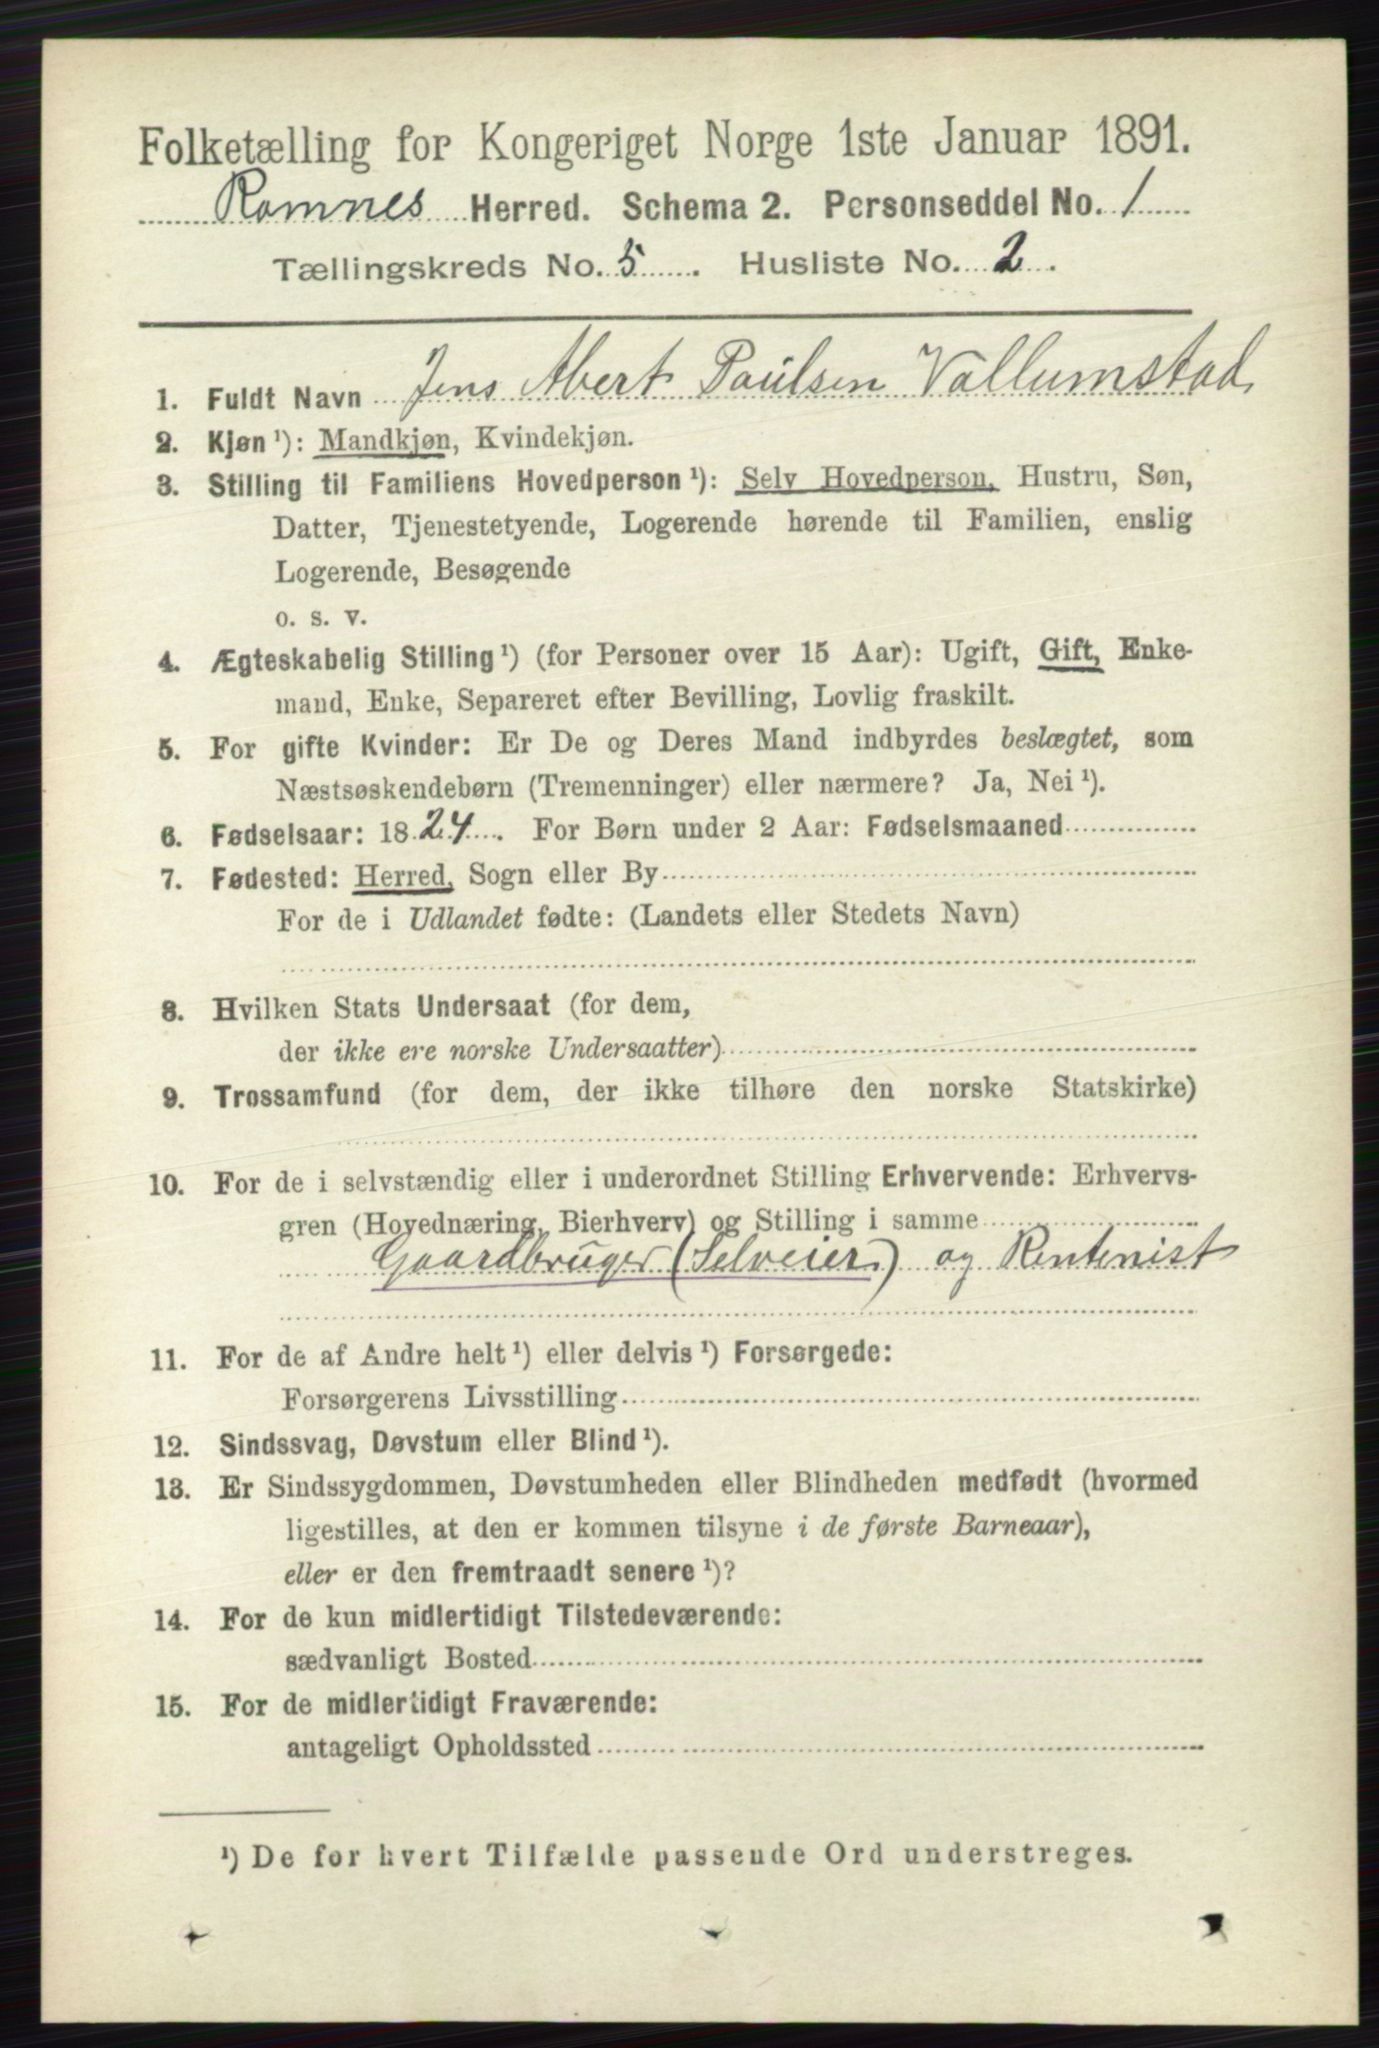 Folketælling for Kongeriget Norge 1ste Januar 1891.
Ramnes Herred. Schema 2. Personseddel No. 1
Tællingskreds No. 5. Husliste No. 2.
1. Fuldt Navn Jens Abert Paulsen Vallumstad
2. Kjøn ¹): Mandkjøn, Kvindekjøn.
3. Stilling til Familiens Hovedperson ¹): Selv Hovedperson, Hustru, Søn,
Datter, Tjenestetyende, Logerende hørende til Familien, enslig
Logerende, Besøgende
o. s. v.
4. Ægteskabelig Stilling ¹) (for Personer over 15 Aar): Ugift, Gift, Enke-
mand, Enke, Separeret efter Bevilling, Lovlig fraskilt.
5. For gifte Kvinder: Er De og Deres Mand indbyrdes beslægtet, som
Næstsøskendebørn (Tremenninger) eller nærmere? Ja, Nei ¹).
6. Fødselsaar: 1824. For Børn under 2 Aar: Fødselsmaaned
7. Fødested: Herred, Sogn eller By
For de i Udlandet fødte: (Landets eller Stedets Navn)
8. Hvilken Stats Undersaat (for dem,
der ikke ere norske Undersaatter)
9. Trossamfund (for dem, der ikke tilhøre den norske Statskirke)
10. For de i selvstændig eller i underordnet Stilling Erhvervende: Erhvervs-
gren (Hovednæring, Bierhverv) og Stilling i samme
Gaardbruger (Selveier) og Rentenist
11. For de af Andre helt ¹) eller delvis ¹) Forsørgede:
Forsørgerens Livsstilling
12. Sindssvag, Døvstum eller Blind ¹).
13. Er Sindssygdommen, Døvstumheden eller Blindheden medfødt (hvormed
ligestilles, at den er kommen tilsyne i de første Barneaar),
eller er den fremtraadt senere ¹)?
14. For de kun midlertidigt Tilstedeværende:
sædvanligt Bosted
15. For de midlertidigt Fraværende:
antageligt Opholdssted
¹) De for hvert Tilfælde passende Ord understreges.